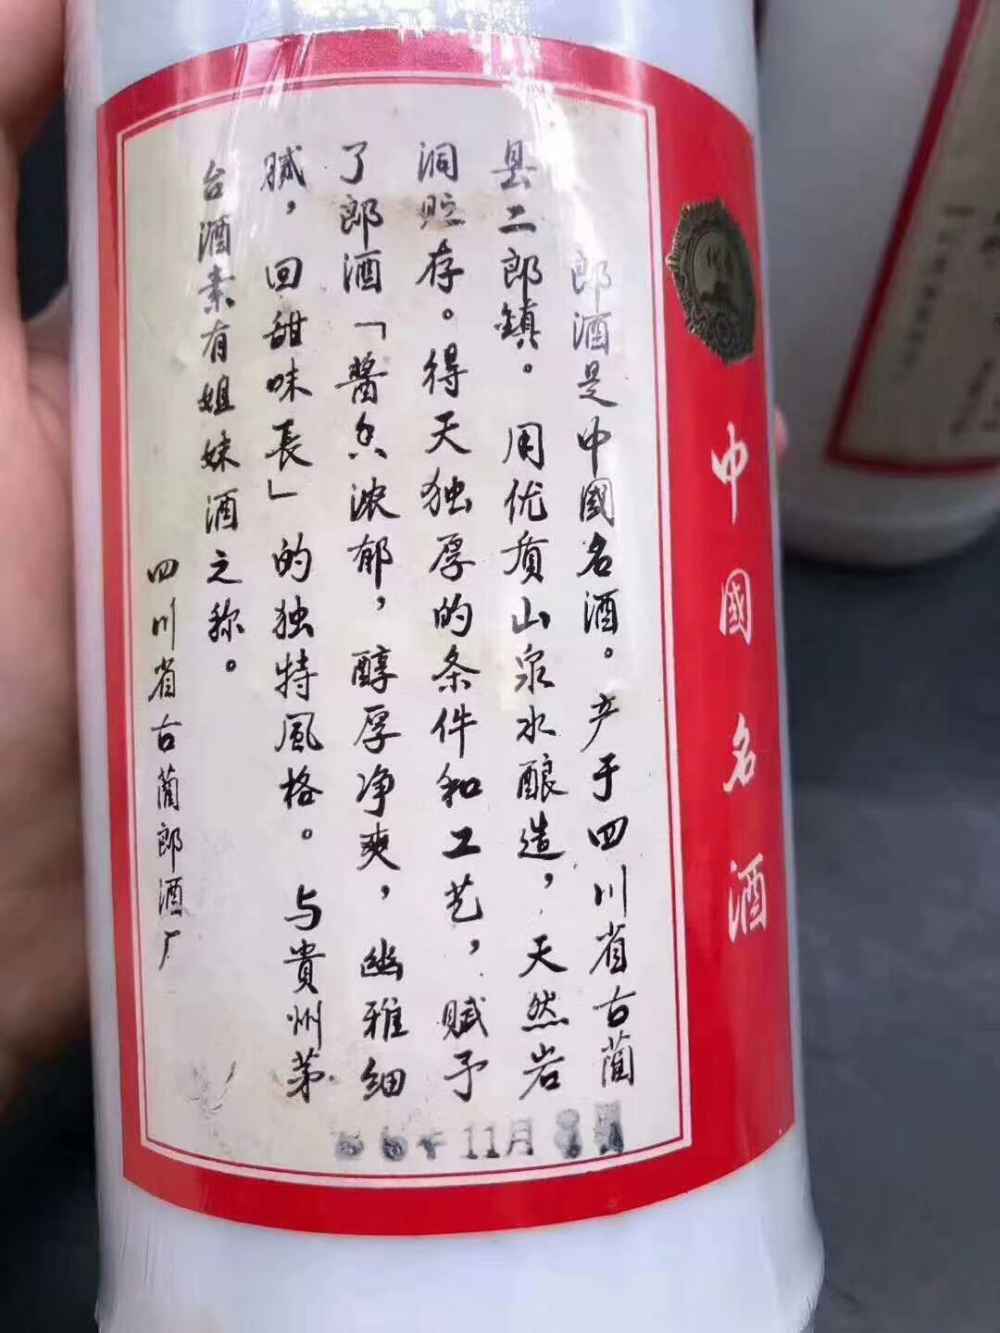 郎酒是中國名酒。产于四川省古藺
县二郎鎮。用优质山泉水酿造，天然岩
洞贮存。得天独厚的条件和工艺，赋予
了郎酒「醬香浓郁，醇厚净爽，幽雅细
腻，回甜味長」的独特風格。与貴州茅
台酒素有姐妹酒之称。
四川省古藺郎酒厂
11月
中國名酒